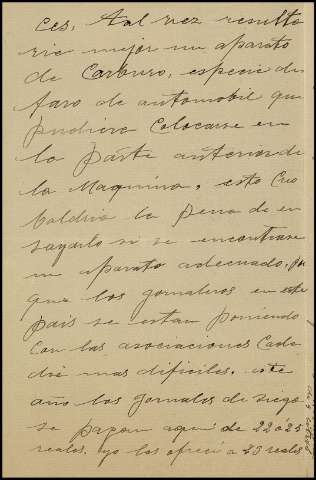 ces, Tal vez resulta
ria mejor un aparato
de Carburo, especie de
faro de automobil que
pudiera Colocarse en
la parte anterior de
la Maquina, esto Creo
Valdria la pena de en
sayarlo si se encontrase
un aparato adecuado, por
que los jornaleros en este
pais se estan poniendo
con las asociaciones Cada
dia mas dificiles. este
año los jornales de siega
se pagan aqui de 22 a 25
reales. yo los ofreci a 25 reales